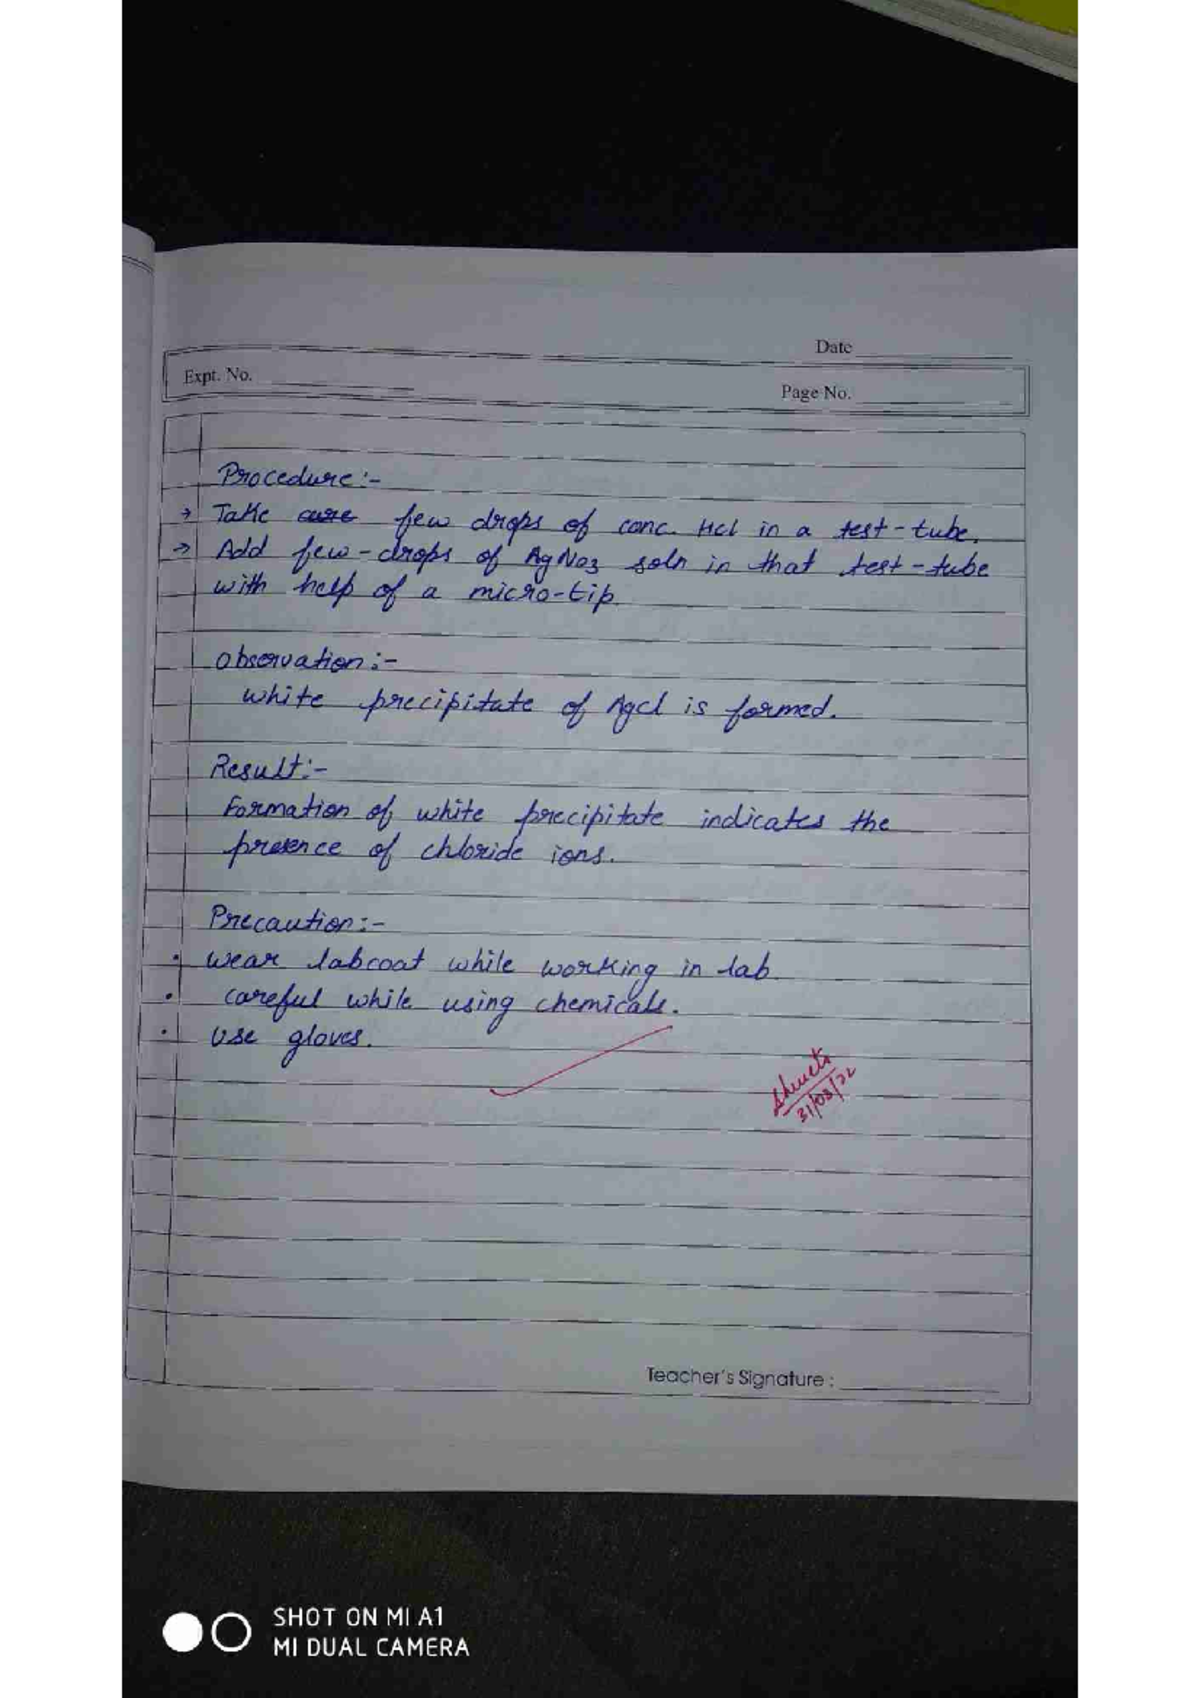 Date
Expt. No.
Page No.
Procedure:-
→ Take care few drops of conc. Hcl in a test-tube.
→ Add few-drops of AgNo3 soln in that test-tube
with help of a micro-tip.
Observation:-
white precipitate of Agcl is formed.
Result:-
Formation of white precipitate indicates the
presence of chloride ions.
Precaution:-
• wear labcoat while working in lab
• careful while using chemicals.
• Use gloves.
31/03/22
Teacher's Signature :
SHOT ON MI A1
MI DUAL CAMERA